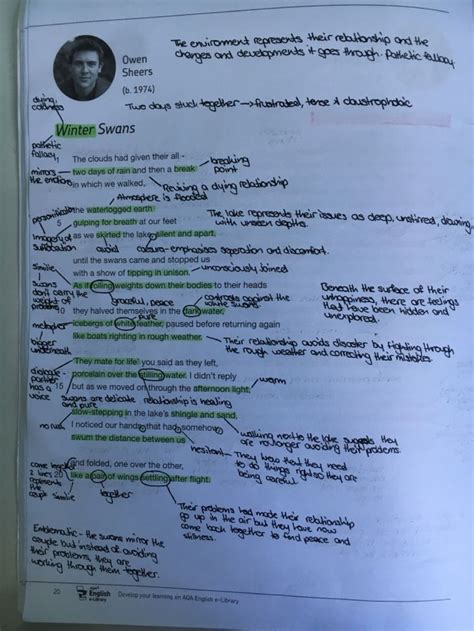 Owen
Sheers
(b. 1974)
The environment represents their relationship and the
changes and developments it goes through. Pathetic fallacy.
Two days stuck together → frustrated, tense & claustrophobic
dying,
coldness
Winter Swans
pathetic
fallacy
The clouds had given their all -
mirrors the emotions
two days of rain and then a break
breaking
point
in which we walked,
Reviving a dying relationship
Atmosphere is flooded
personification
the waterlogged earth
5 gulping for breath at our feet
The lake represents their issues as deep, drawing
with unseen depths.
Imagery of
suffocation
as we skirted the lake, silent and apart,
avoid
caesura - emphasises seperation and discomfort.
until the swans came and stopped us
with a show of tipping in unison.
unconsciously joined
Simile
As if rolling weights down their bodies to their heads
swans
don't carry the
weight of
problems
graceful, peace
contrasts against the
white swans
Beneath the surface of their
unhappiness, there are feelings
that have been hidden and
unexplored.
10 they halved themselves in the dark water,
pure
metaphor
icebergs of white feather, paused before returning again
bigger
underneath
like boats righting in rough weather.
Their relationship avoids disaster by fighting through
the rough weather and correcting their mistakes.
'They mate for life' you said as they left,
dialogue -
partner
has a
voice
porcelain over the stilling water. I didn't reply
15 but as we moved on through the afternoon light,
warm
swans are delicate relationship is healing
and pure
slow-stepping in the lake's shingle and sand,
walking next to the lake suggests they
are no longer avoiding their problems.
I noticed our hands, that had, somehow,
swum the distance between us
hesitant - They know that they need
to do things right so they are
being careful.
come together
2 lines
represents the
couple simile
and folded, one over the other,
20 like a pair of wings settling after flight.
together
Their problems had made their relationship
go up in the air but they have now
come back together to find peace and
stillness.
Emblematic - the swans mirror the
couple but instead of avoiding
their problems, they are
working through them together.
20
English
e-Library
Develop your learning on AQA English e-Library